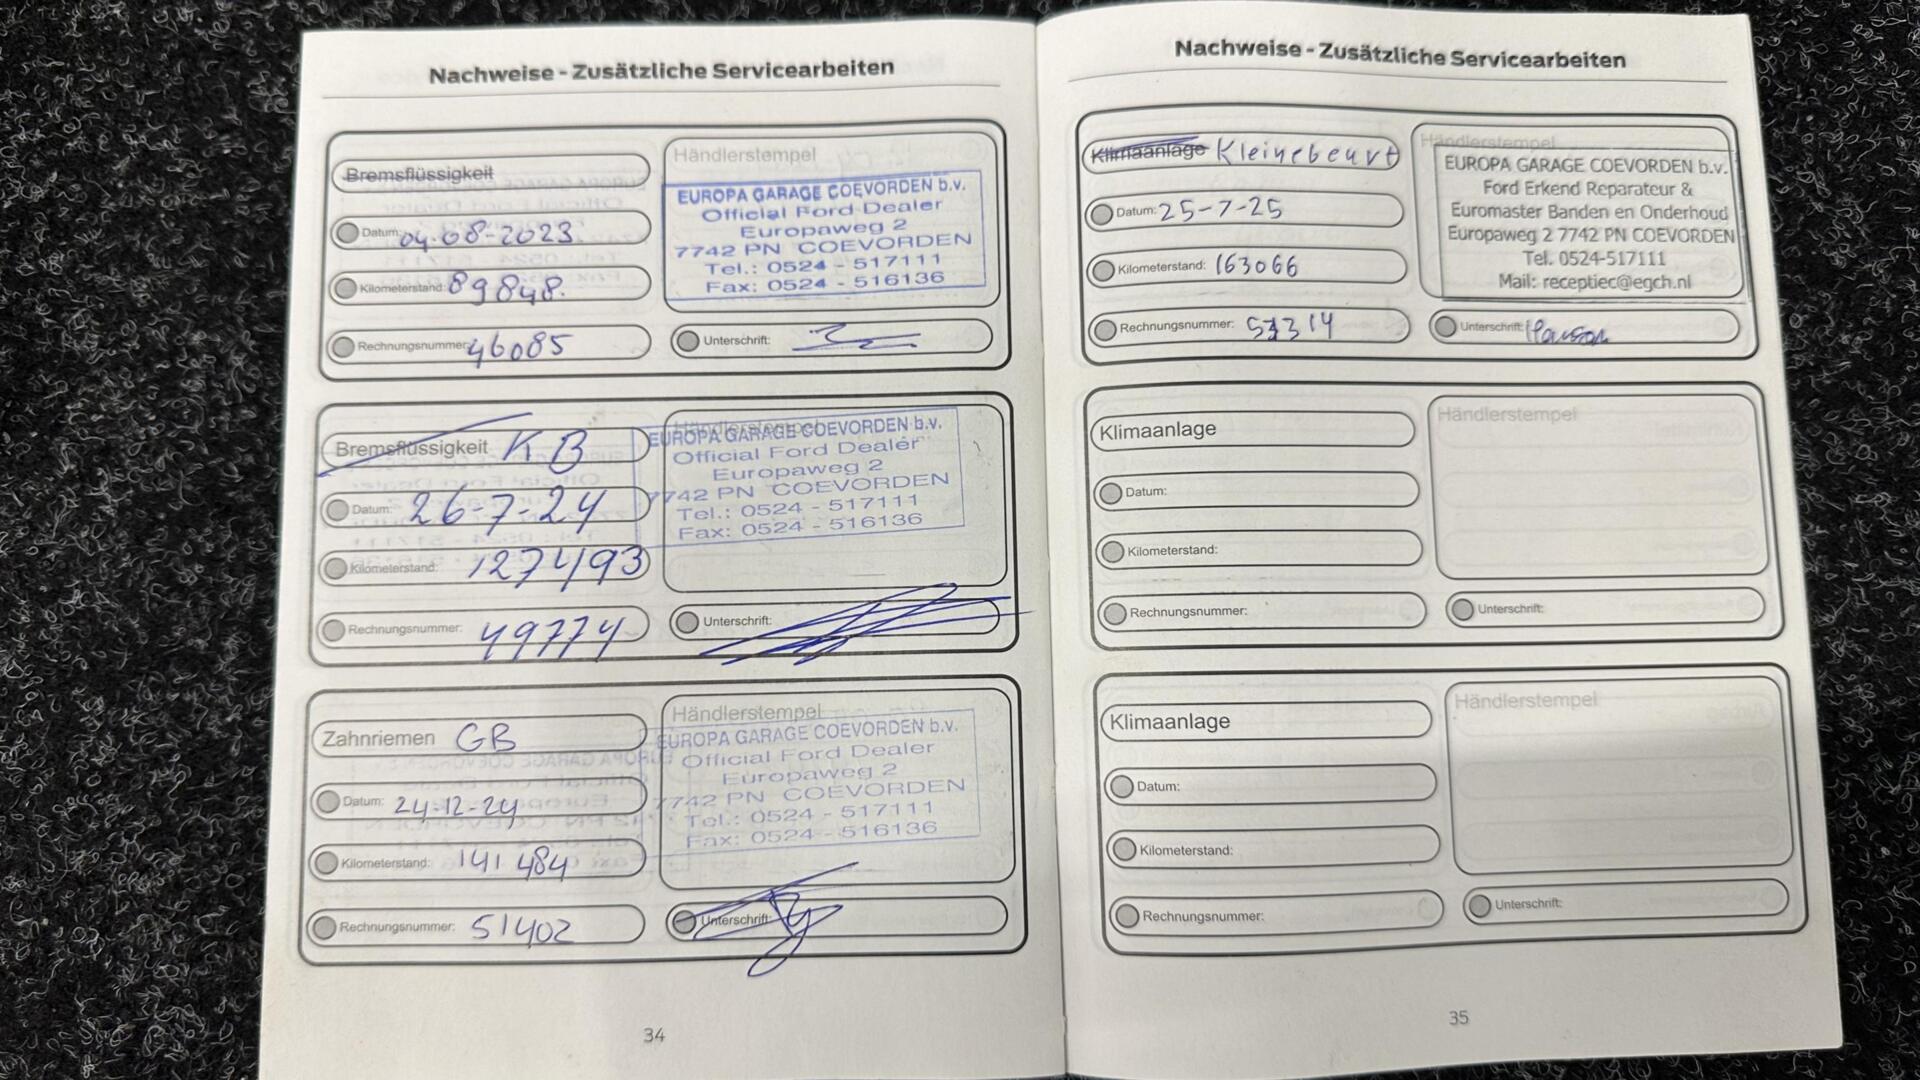 Nachweise - Zusätzliche Servicearbeiten
Bremsflüssigkeit
Datum: 04-08-2023
Kilometerstand: 89848.
Rechnungsnummer: 46085
Händlerstempel
EUROPA GARAGE COEVORDEN b.v.
Official Ford Dealer
Europaweg 2
7742 PN COEVORDEN
Tel.: 0524 - 517111
Fax: 0524 - 516136
Unterschrift:
Bremsflüssigkeit KB
Datum: 26-7-24
Kilometerstand: 127493
Rechnungsnummer: 49774
Händlerstempel
EUROPA GARAGE COEVORDEN b.v.
Official Ford Dealer
Europaweg 2
7742 PN COEVORDEN
Tel.: 0524 - 517111
Fax: 0524 - 516136
Unterschrift:
Zahnriemen GB
Datum: 24-12-24
Kilometerstand: 141 484
Rechnungsnummer: 51402
Händlerstempel
EUROPA GARAGE COEVORDEN b.v.
Official Ford Dealer
Europaweg 2
7742 PN COEVORDEN
Tel.: 0524 - 517111
Fax: 0524 - 516136
Unterschrift:
34
Nachweise - Zusätzliche Servicearbeiten
Klimaanlage Kleinebeurt
Datum: 25-7-25
Kilometerstand: 163066
Rechnungsnummer:
Händlerstempel
EUROPA GARAGE COEVORDEN b.v.
Ford Erkend Reparateur &
Euromaster Banden en Onderhoud
Europaweg 2 7742 PN COEVORDEN
Tel. 0524-517111
Mail: receptiec@egch.nl
Unterschrift:
Klimaanlage
Datum:
Kilometerstand:
Rechnungsnummer:
Händlerstempel
Unterschrift:
Klimaanlage
Datum:
Kilometerstand:
Rechnungsnummer:
Händlerstempel
Unterschrift:
35